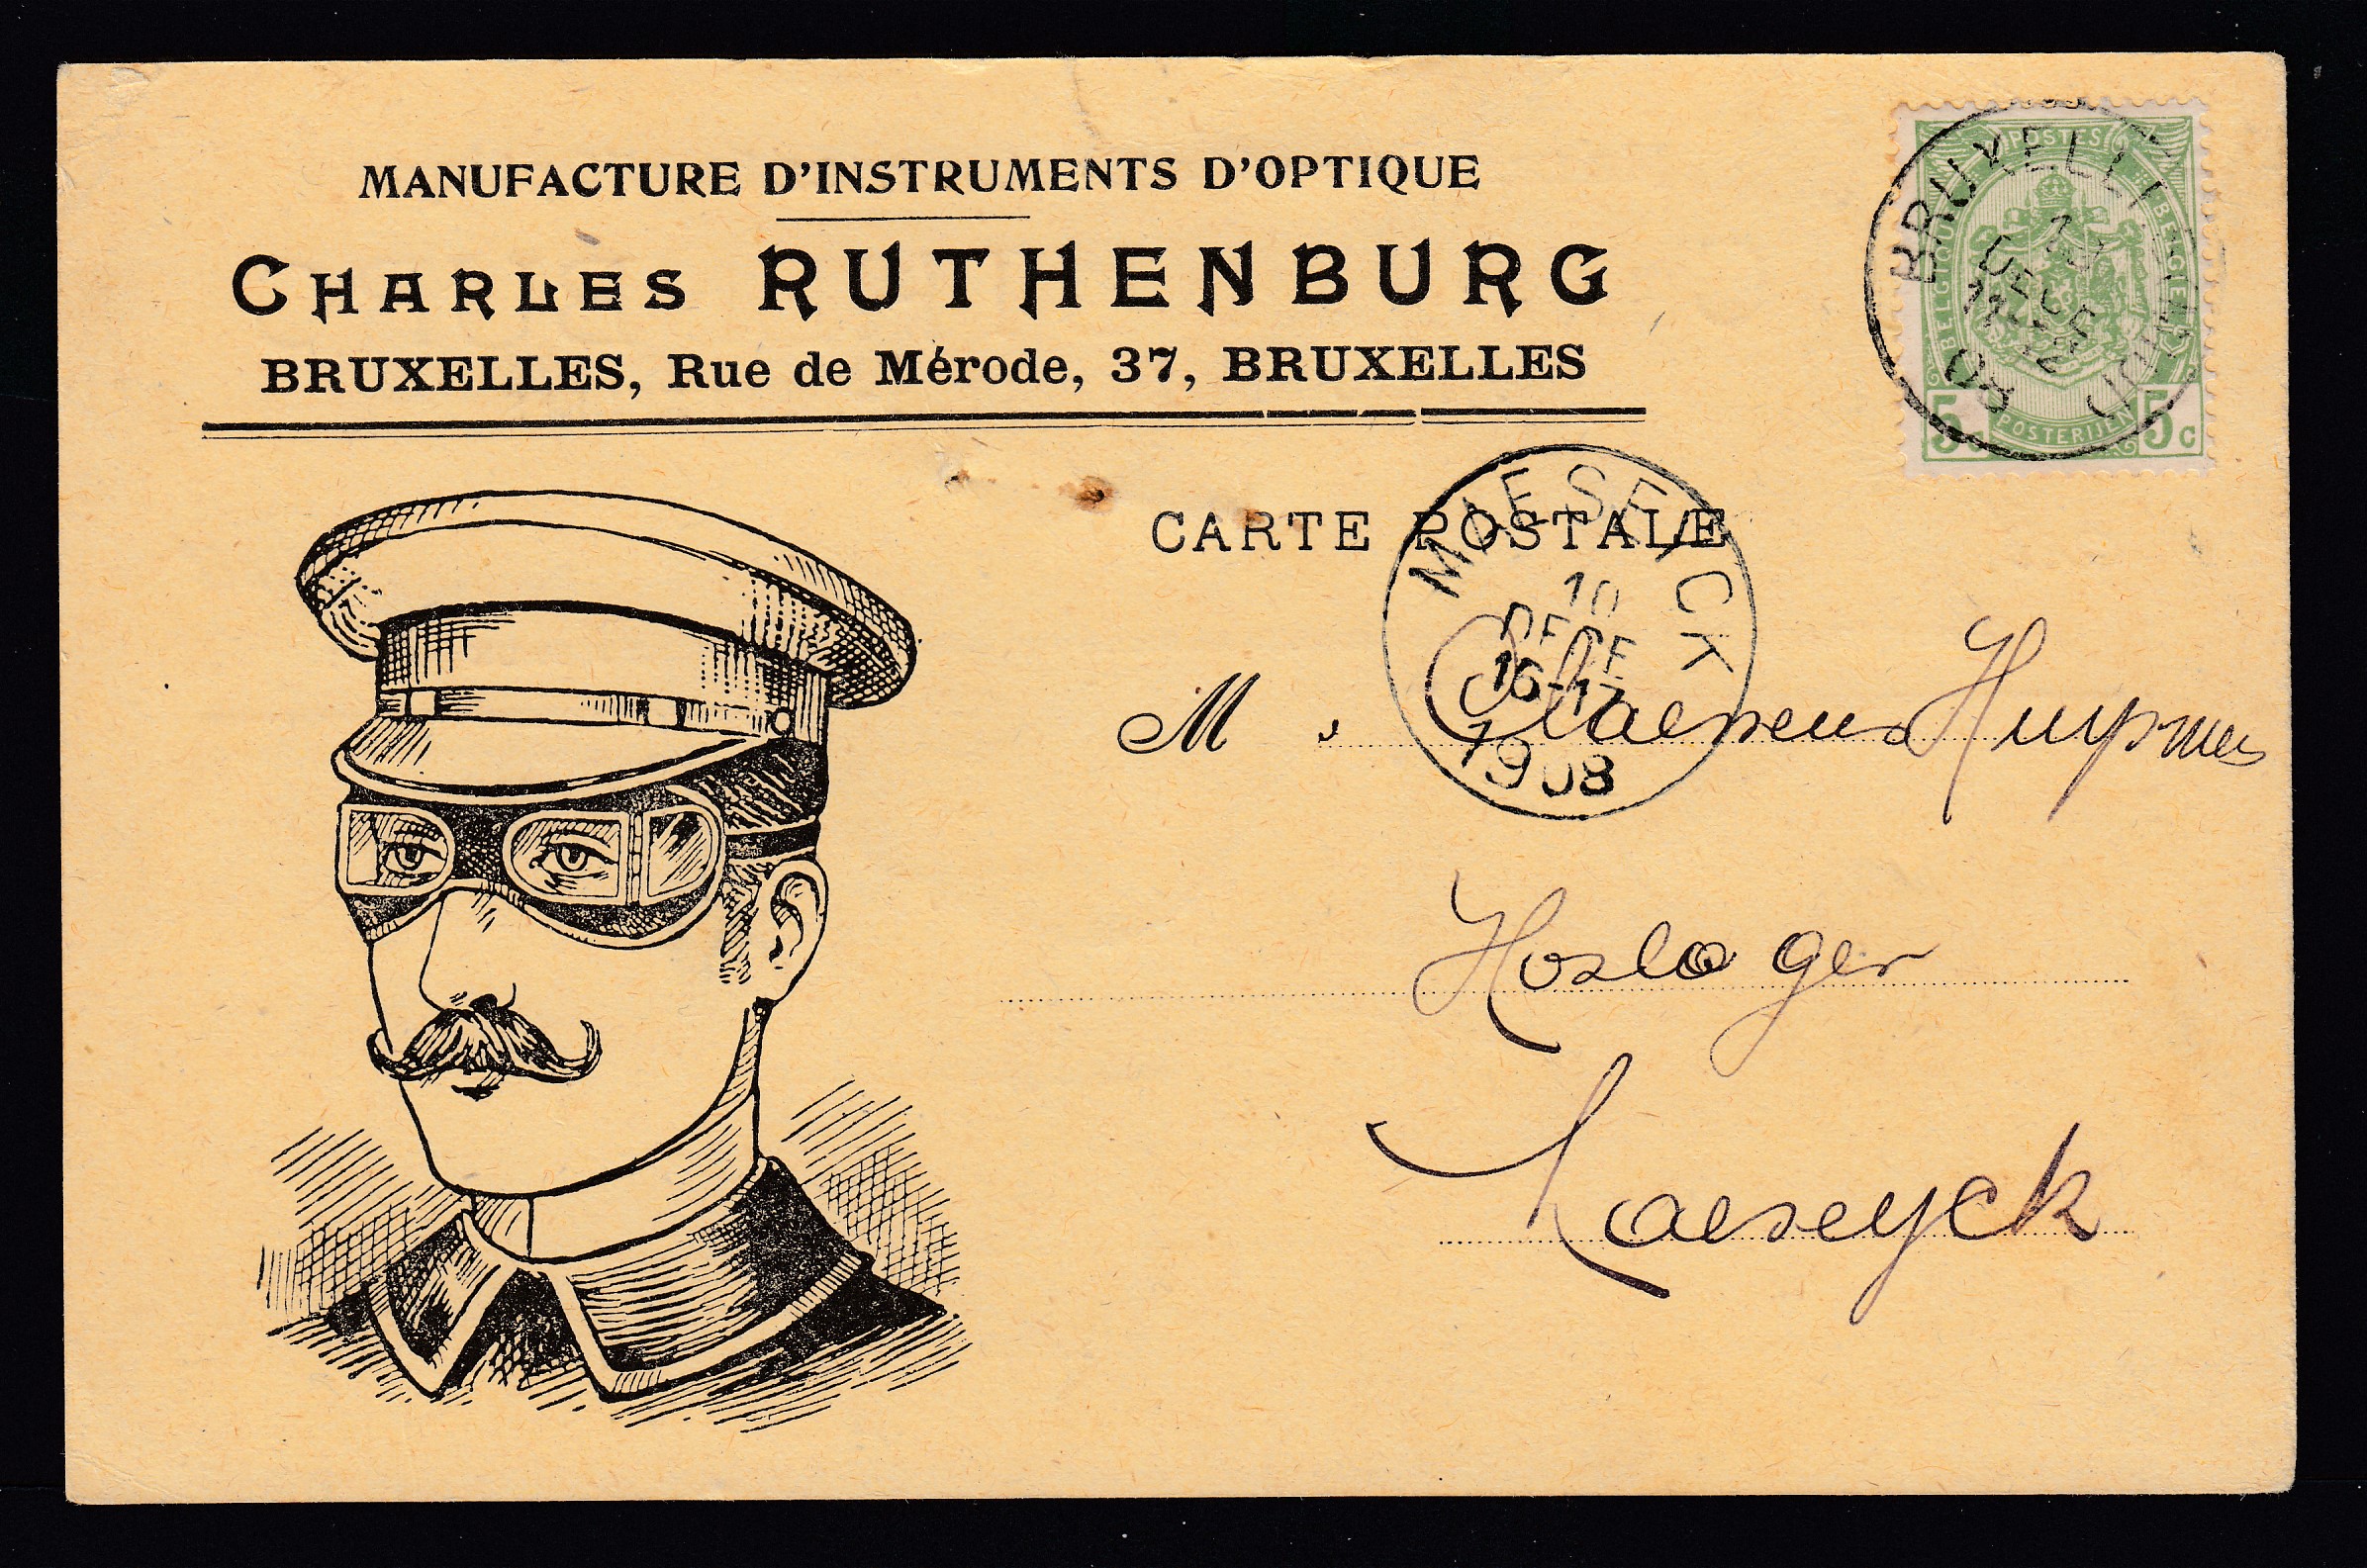 MANUFACTURE D'INSTRUMENTS D'OPTIQUE
CHARLES RUTHENBURG
BRUXELLES, Rue de Mérode, 37, BRUXELLES
POSTES
BELGIQUE
BELGIE
5c 5c
POSTERIJEN
BRUXELLES
DECE
11-12
08
CARTE POSTALE
MAESEYCK
10
DECE
16-17
1908
M
Horloger
Maeseyck